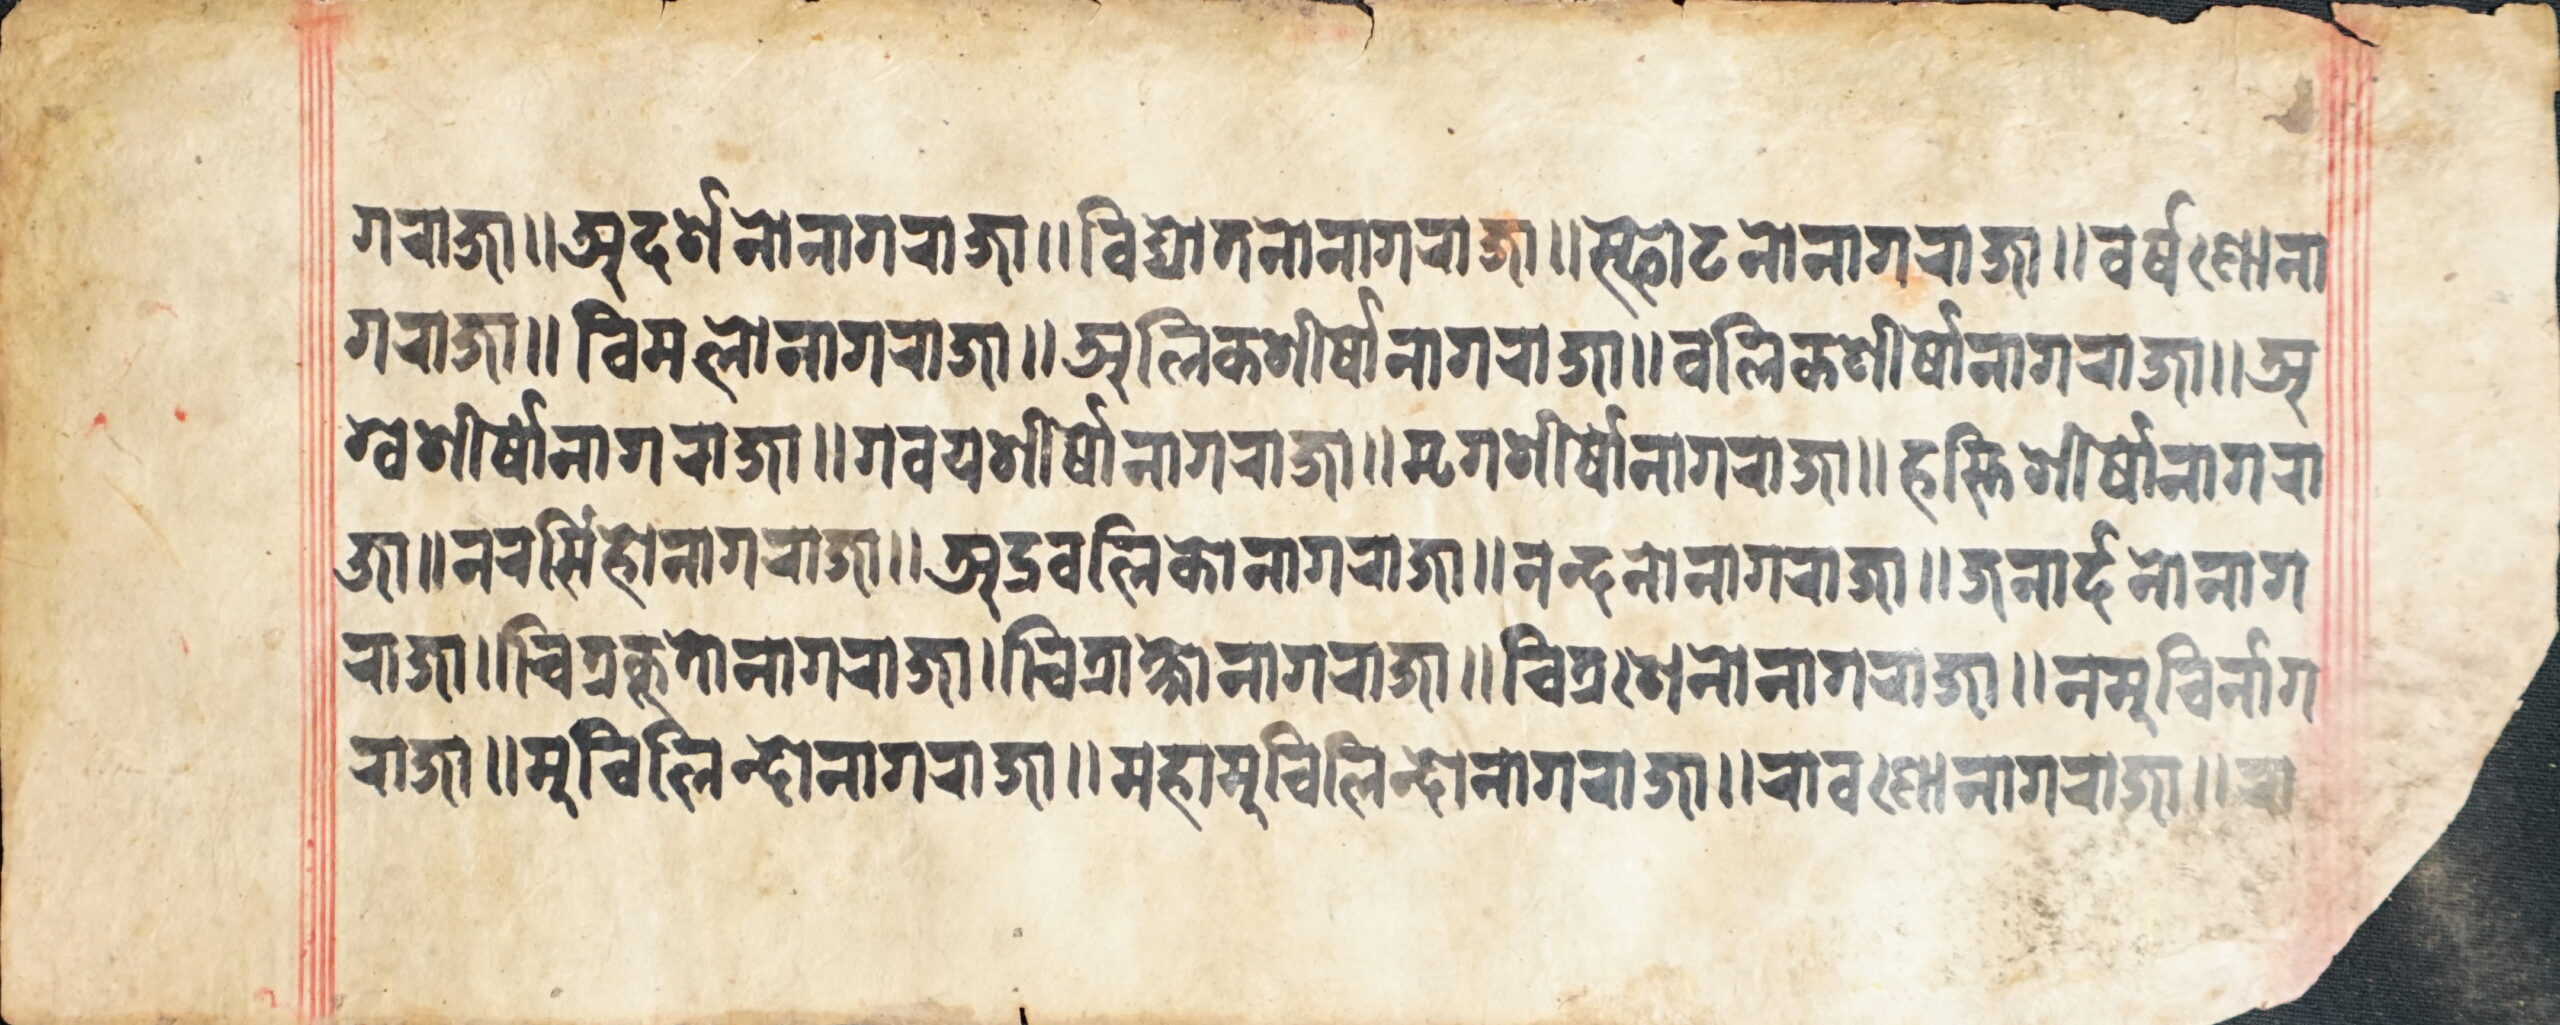 गराजा॥अदर्शनोनागराजा॥विद्योतनोनागराजा॥स्फोटनोनागराजा॥वर्षणोना
गराजा॥विमलोनागराजा॥अलिकशीर्षोनागराजा॥वलिकशीर्षोनागराजा॥अ
श्वशीर्षोनागराजा॥गवयशीर्षोनागराजा॥मृगशीर्षोनागराजा॥हस्तिशीर्षोनागरा
जा॥नरसिंहोनागराजा॥अद्रवलिकोनागराजा॥नन्दनोनागराजा॥जनार्दनोनाग
राजा॥चित्रकूतोनागराजा॥चित्राक्षोनागराजा॥चित्रशेनोनागराजा॥नमुचिर्नाग
राजा॥मुचिलिन्दोनागराजा॥महामुचिलिन्दोनागराजा॥रावणोनागराजा॥रा